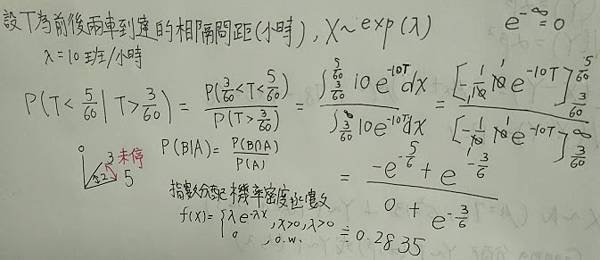 設T為前後兩車到達的相隔間距(小時), X~exp(λ)   e^{-∞}=0
λ=10班/小時
P(T<5/60 | T>3/60) = P(3/60<T<5/60) / P(T>3/60) = ∫_{3/60}^{5/60} 10e^{-10T}dx / ∫_{3/60}^{∞} 10e^{-10T}dx = [-1/10 10 e^{-10T}]_{3/60}^{5/60} / [-1/10 10 e^{-10T}]_{3/60}^{∞}
P(B|A) = P(B∩A) / P(A)
0 3 未停
2 5
= (-e^{-5/6} + e^{-3/6}) / (0 + e^{-3/6})
指數分配機率密度函數
f(x)= { λe^{-λx}, x>0, λ>0
0, o.w.
≒ 0.2835